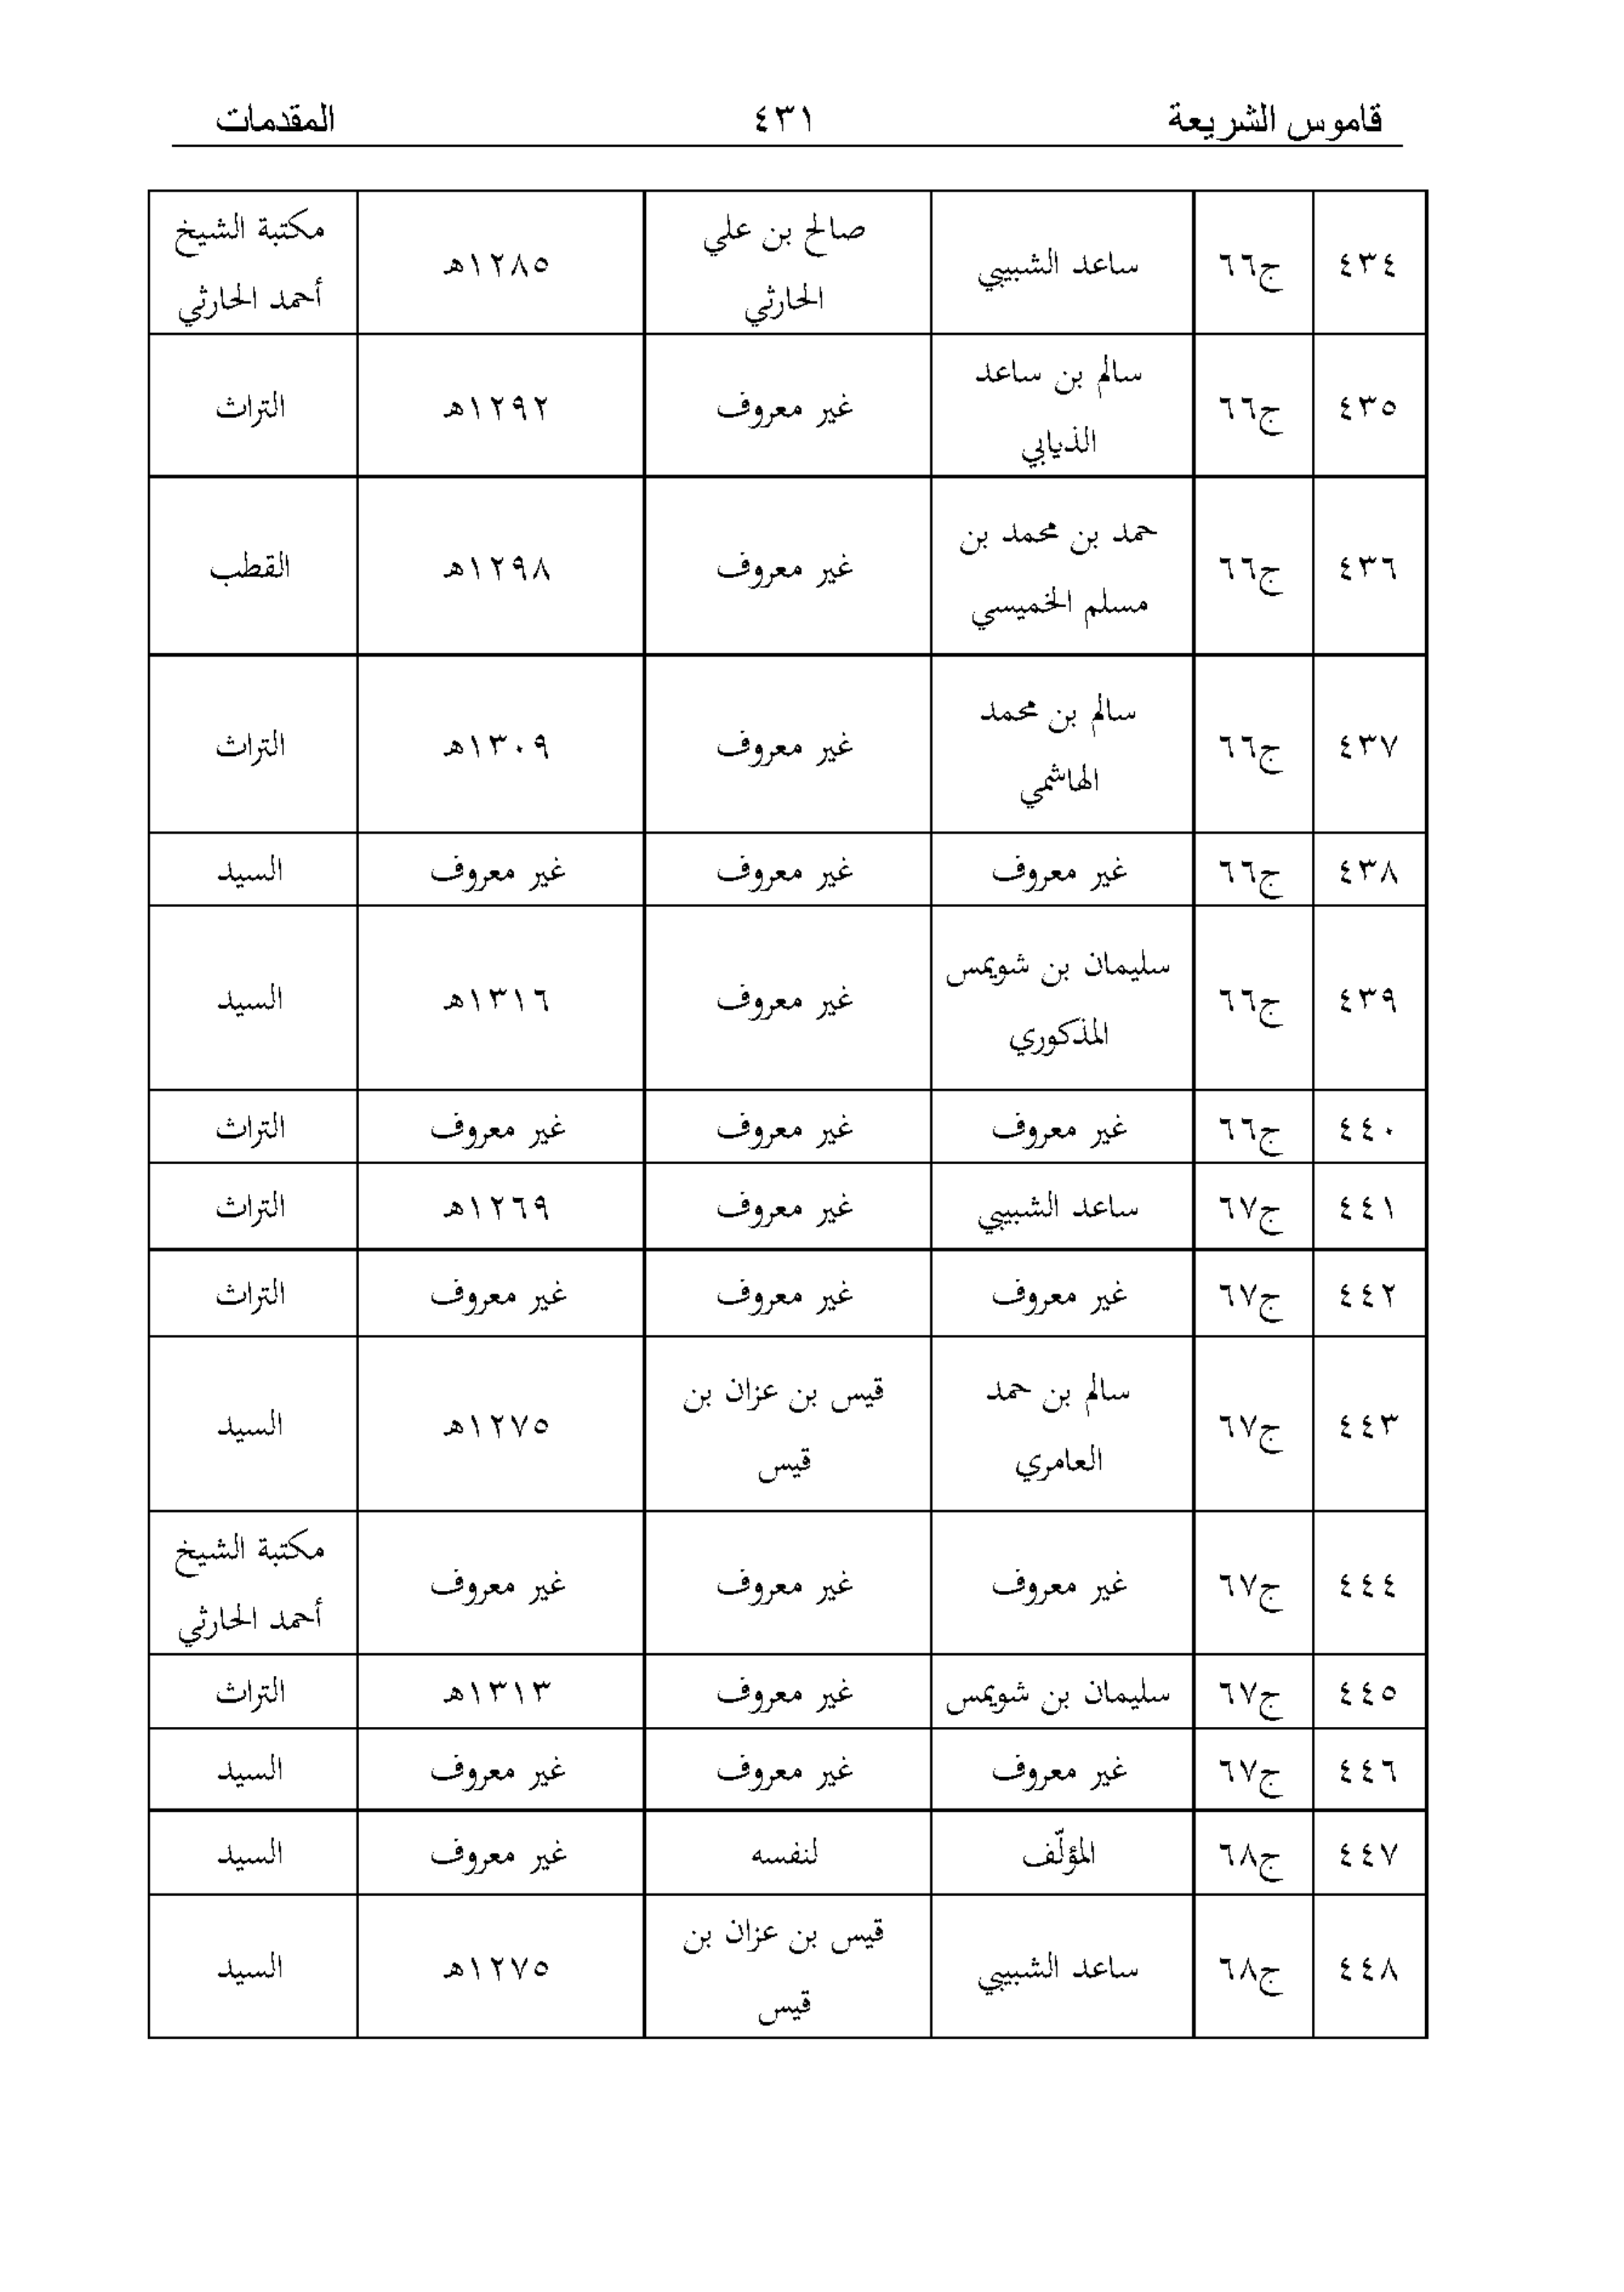 قاموس الشريعة ٤٣١ المقدمات
٤٣٤ ج٦٦ ساعد الشبيبي صالح بن علي الحارثي ١٢٨٥هـ مكتبة الشيخ أحمد الحارثي
٤٣٥ ج٦٦ سالم بن ساعد الذيابي غير معروف ١٢٩٢هـ التراث
٤٣٦ ج٦٦ حمد بن محمد بن مسلم الخميسي غير معروف ١٢٩٨هـ القطب
٤٣٧ ج٦٦ سالم بن محمد الهاشمي غير معروف ١٣٠٩هـ التراث
٤٣٨ ج٦٦ غير معروف غير معروف غير معروف السيد
٤٣٩ ج٦٦ سليمان بن شويمس المذكوري غير معروف ١٣١٦هـ السيد
٤٤٠ ج٦٦ غير معروف غير معروف غير معروف التراث
٤٤١ ج٦٧ ساعد الشبيبي غير معروف ١٢٦٩هـ التراث
٤٤٢ ج٦٧ غير معروف غير معروف غير معروف التراث
٤٤٣ ج٦٧ سالم بن حمد العامري قيس بن عزان بن قيس ١٢٧٥هـ السيد
٤٤٤ ج٦٧ غير معروف غير معروف غير معروف مكتبة الشيخ أحمد الحارثي
٤٤٥ ج٦٧ سليمان بن شويمس غير معروف ١٣١٣هـ التراث
٤٤٦ ج٦٧ غير معروف غير معروف غير معروف السيد
٤٤٧ ج٦٨ المؤلّف لنفسه غير معروف السيد
٤٤٨ ج٦٨ ساعد الشبيبي قيس بن عزان بن قيس ١٢٧٥هـ السيد